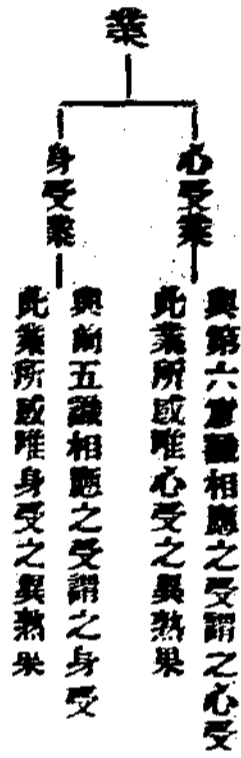 業
心受業
與第六意識相應之受謂之心受
此業所感唯心受之異熟果
身受業
與前五識相應之受謂之身受
此業所感唯身受之異熟果